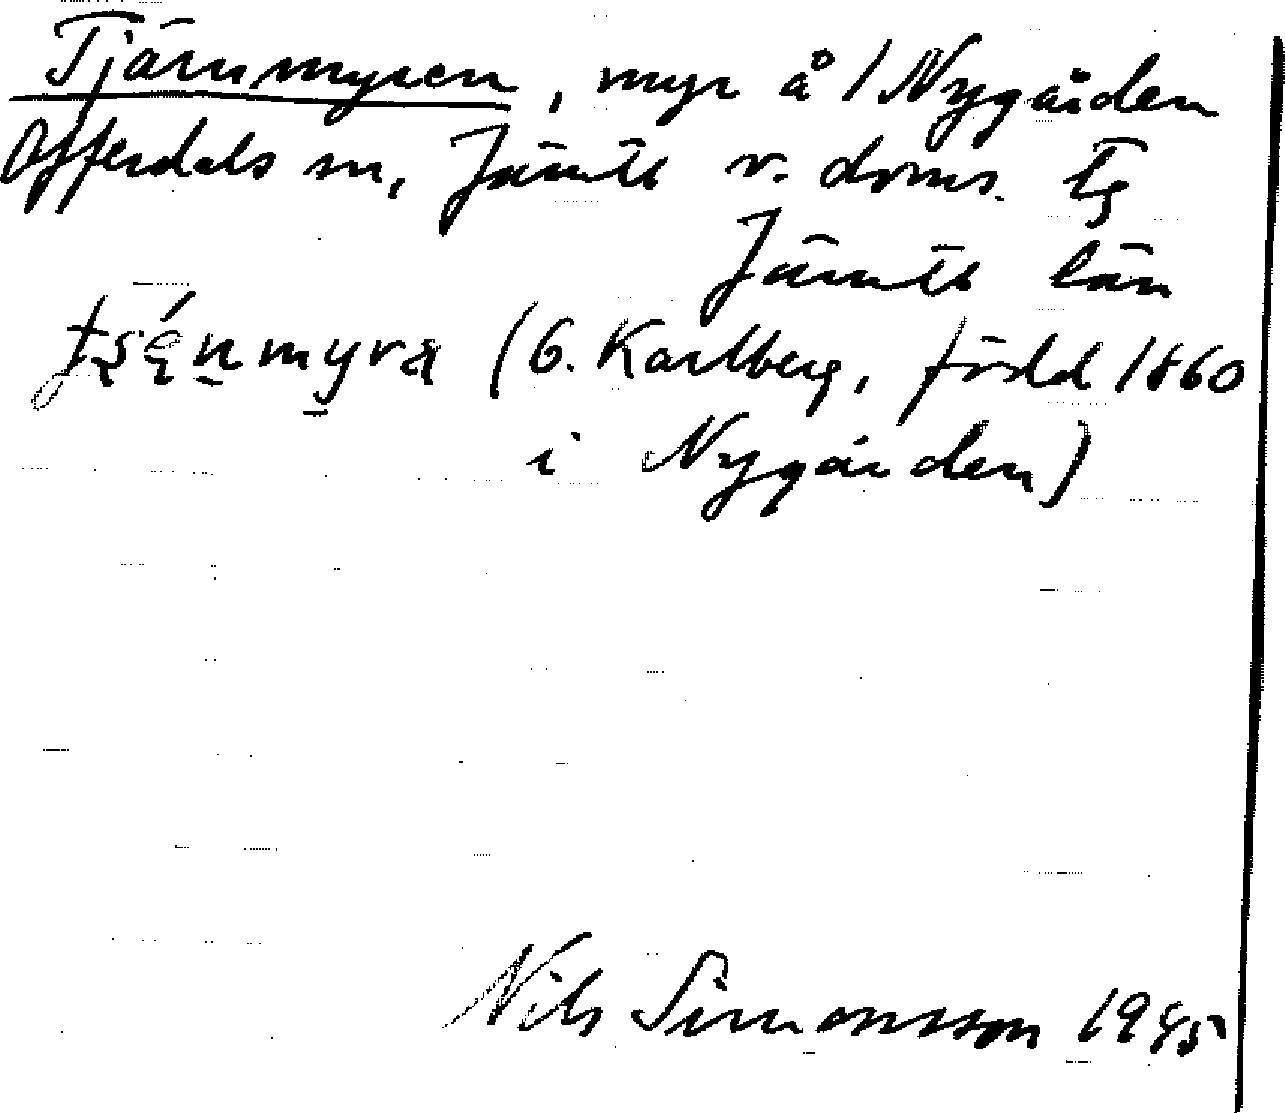 Tjärnmyren, myr å 1 Nygården
Offerdals sn, Jämtl v. doms. tg
Jämtl län
(G. Karlberg, född 1860
i Nygården)
Nils Simonsson 1945